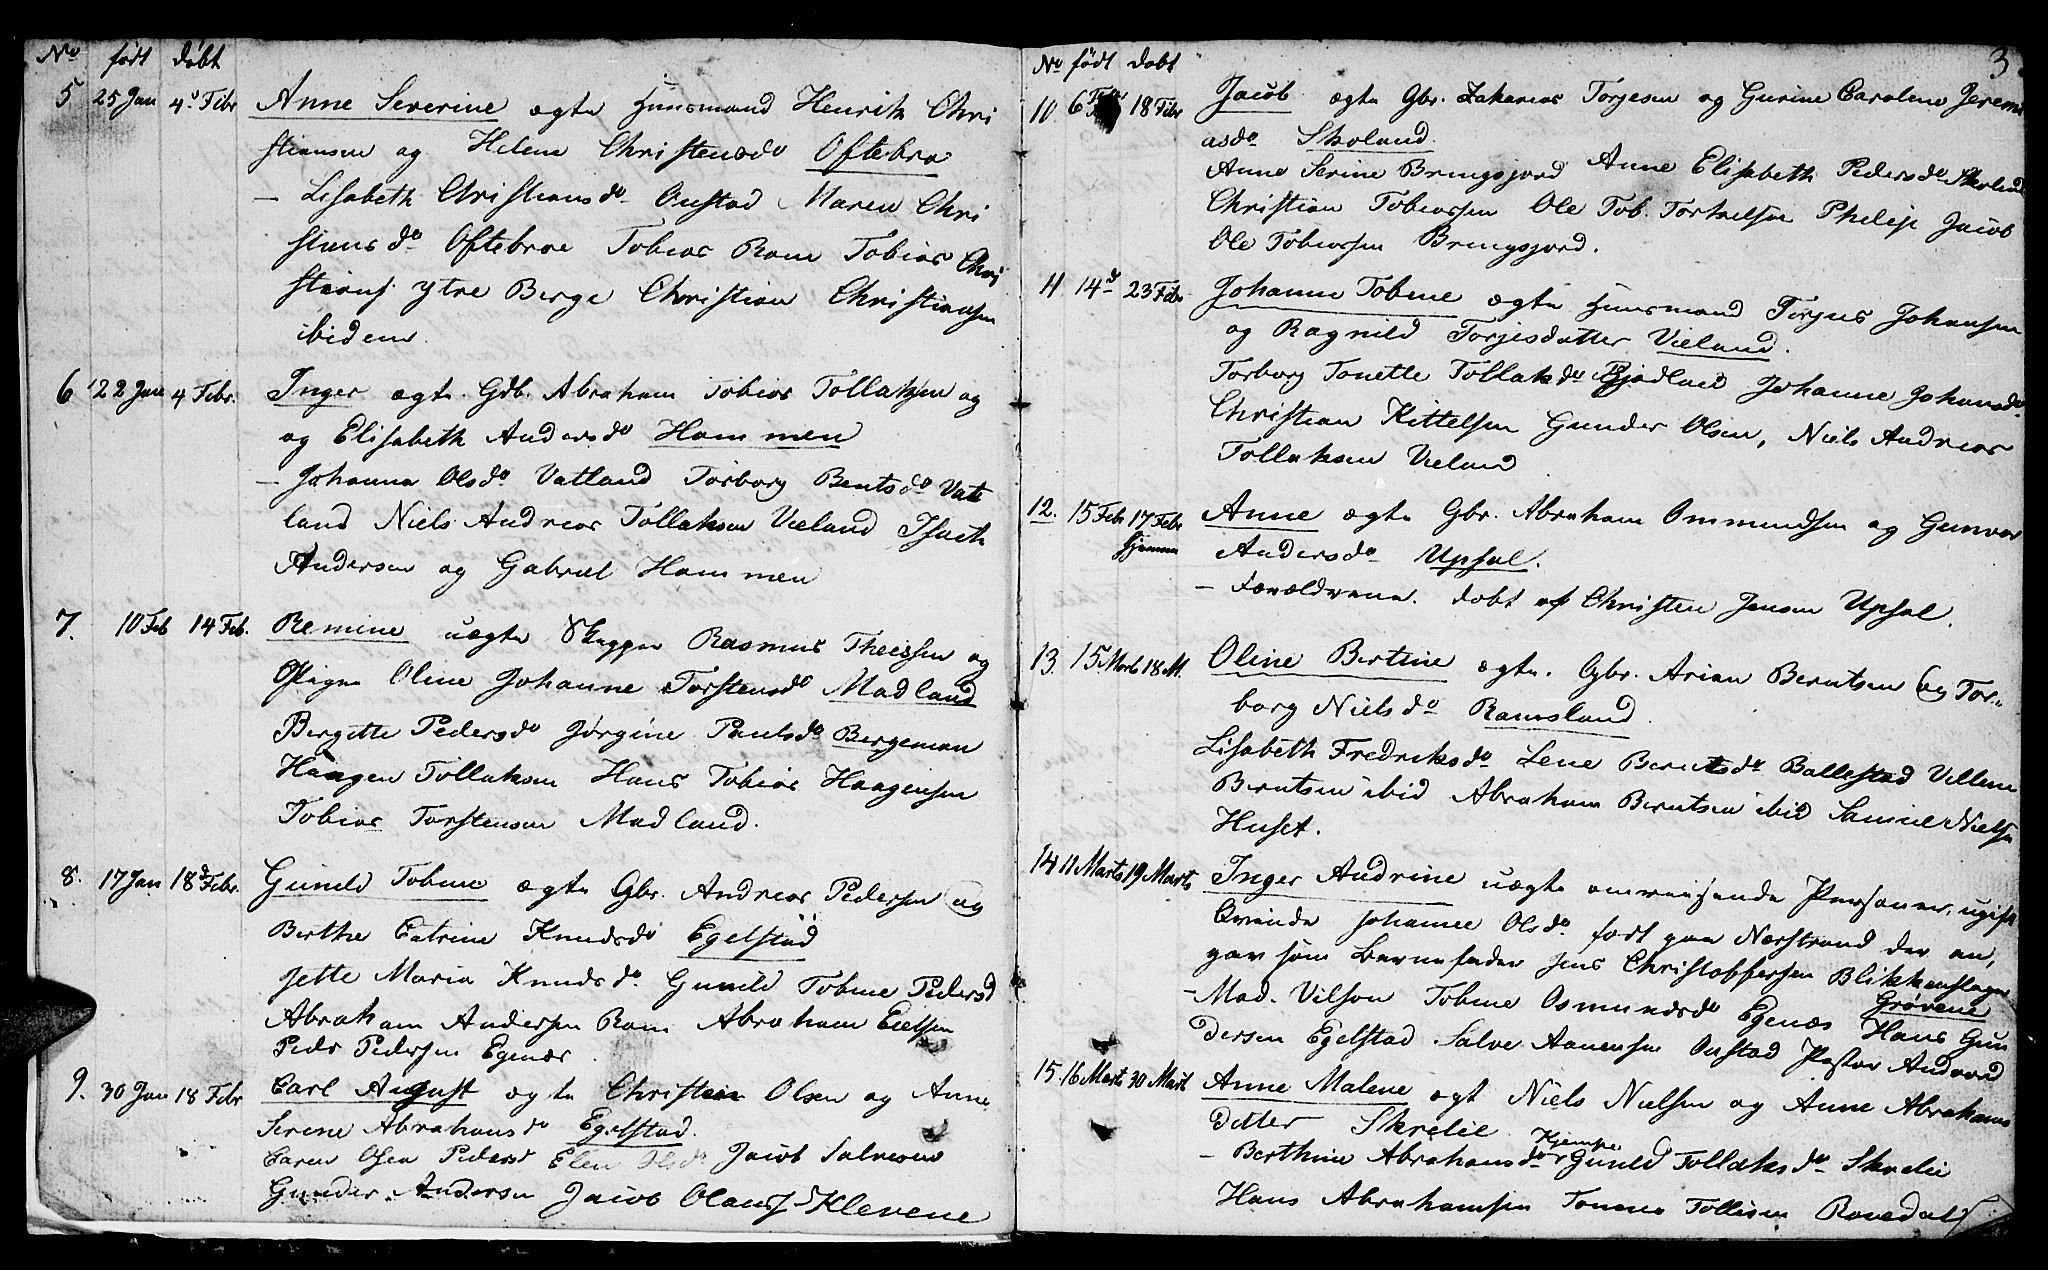 No født døbt
5 25 Jan 4d Febr Anne Severine ægte Huusmand Henrik Chri
stiansen og Helene Christensdr Oftebro
– Lisabeth Christiansdr Onstad Maren Chri
stiansdr Oftebroe Tobias Ram Tobias Chri
stians ytre Berge Christian Christiansen
ibidem.
6 22 Jan 4 Febr. Inger ægte Gdb. Abraham Tobias Tollaksen og
og Elisabeth Andersdr Hommen
– Johanna Olsdr Vatland Torborg Bentsdr Vat
land Niels Andreas Tollaksen Vieland Isach
Andersen og Gabriel Hommen
7. 10 Feb 14 Feb. Remine uægte Rasmus Theissen og
Pigen Oline Johanne Torstensdr Madland
Bergitte Pedersdr Jørgine Paulsdr Bergeman
Haagen Tollaksen Hans Tobias Haagensen
Tobias Torstensen Madland.
8. 17 Jan 18d Febr. Gunild Tobine ægte Gbr. Andreas Pedersen og
Berthe Catrine Knudsdr Egelstad
Jette Maria Knudsdr. Gunild Tobine Pedersd
Abraham Andersen Ram Abraham Eielsen
Peder Pedersen Egenæs.
9. 30 Jan 18 Febr Carl August ægte Christen Olsen og Anne
Serene Abrahamsdr Egelstad.
Caren Olsen Pedersd Elen Olsdr Jacob Salvesen
Gunder Andersen Jacob Olaus Klevene
3
No født døbt
10 6 Febr 18 Febr Jacob ægte Gbr. Zakarias Torjesen og Gurine Caroline Jeremi
asdr Skoland
Anne Serine Bringsjord Anne Elisabeth Pedersdr Skoland
Christian Tobiassen Ole Tob. Torkelsen Philip Jacob
Ole Tobiassen Bringsjord.
11 14d 23 Febr. Johanne Tobine ægte Huusmand Torjus Johansen
og Ragnild Torjesdatter Vieland.
Torborg Tonette Tollaksdr Johanne Johansdr
Christian Kittelsen Gunder Olsen, Niels Andreas
Tollaksen Vieland
12. 15 Febr 17 Febr Anne ægte Gbr. Abraham Ommundsen og Gunvor
hjemme Andersdr Upsal.
– Forældrene. døbt af Christen Jensen Upsal.
13. 15 Marts 18 M. Oline Bertine ægte. Gbr. Arian Berntsen og Tor-
borg Nielsdr Ramsland.
Lisabeth Fredriksdr Lene Berntsdr Ballestad Villem
Berntsen ibid Abraham Berntsen ibid Samuel Nielsen
Huset.
14 11 Marts 19 Marts Inger Andrine uægte omreisende Personer, ugift
Qvinde Johanne Olsdr født paa Nærstrand der an,
gav som Barnefader Jens Christoffersen Blikkenslager
– Mad. Vilson Tobine Osmundsdr Egenæs Grøvene Hans Gun
dersen Egelstad Salve Aanensen Onstad Pastor
15. 16 Marts 30 Mart Anne Malene ægt Niels Nielsen og Anne Abrahams
datter Skrelie
– Berthine Abrahamsdr Kjempe Gunild Tollaksdr Skrelie
Hans Abrahamsen Tonnes Tollisen Rosedal